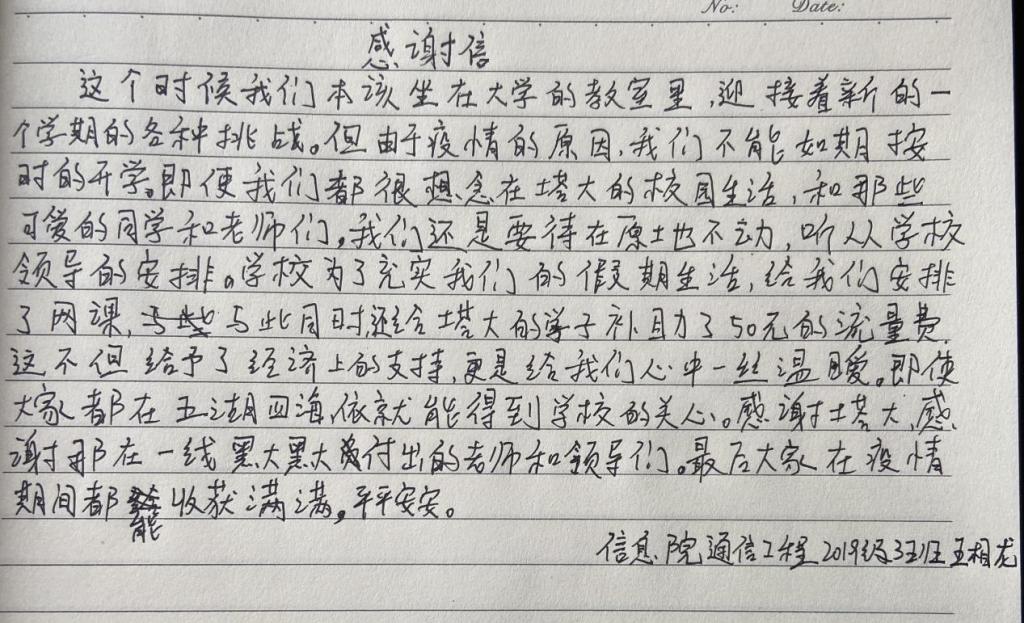 No: Date:
感谢信
这个时候我们本该坐在大学的教室里,迎接着新的一
个学期的各种挑战。但由于疫情的原因,我们不能如期按
时的开学。即使我们都很想念在塔大的校园生活,和那些
可爱的同学和老师们。我们还是要待在原土地不动,听从学校
领导的安排。学校为了充实我们的假期生活,给我们安排
了网课,与此同时,还给塔大的学子补助了50元的流量费.
这不但给予了经济上的支持,更是给我们心中一丝温暖。即使
大家都在五湖四海,依就能得到学校的关心。感谢塔大,感
谢那在一线默默付出的老师和领导们。最后大家在疫情
期间都能收获满满,平平安安。
信息院通信工程2019级3班王相龙